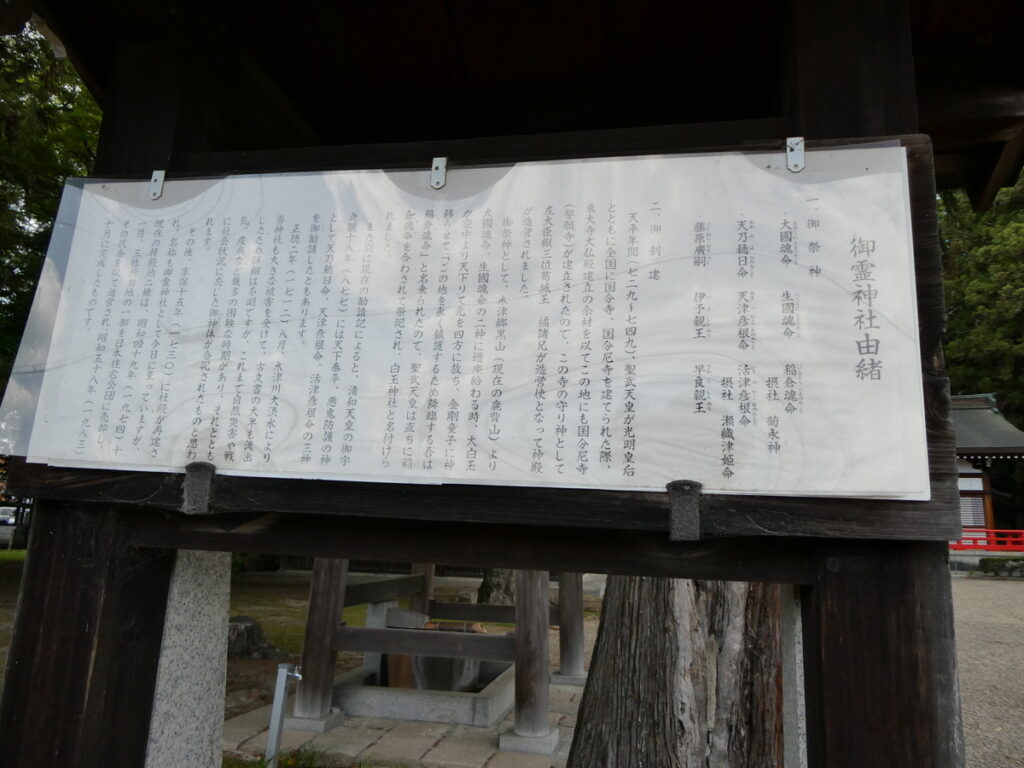 御霊神社由緒
一、御祭神
大國魂命 生國魂命 稲倉魂命 摂社 菊永神
天乃穂日命 天津彦根命 活津彦根命 摂社 瀬織津姫命
藤原廣嗣 伊予親王 早良親王
二、御創建
天平年間(七二九~七四九)、聖武天皇が光明皇后
とともに全国に国分寺、国分尼寺を建てられた際、
東大寺大仏殿建立の余材を以てこの地にも国分尼寺
(誓願寺)が建立されたので、この寺の守り神として
左大臣従三位葛城王 橘諸兄が造営使となって神殿
が造営されました。
御祭神として、木津郷黒山(現在の鹿背山)より
大國魂命、生國魂命の二神に遷座給わる時、大白王
が空中より天下りて光を四方に放ち、金剛童子に神
移らせて「この地を永く鎮護するため降臨する吾は
稲倉魂命」と名乗られたので、聖武天皇は直ちに稲
倉魂命を合わされて祭祀され、白王神社と名付けら
れました。
また次に現在の勧請記によると、清和天皇の御宇
貞観十八年(八七七)には天下泰平、悪鬼防護の神
として天乃穂日命、天津彦根命、活津彦根命の三神
を御勧請したともあります。
正徳二年(一七一二)八月、木津川大洪水により
当神社も大きな被害を受けて、古文書の大半も流出
したため詳細は不明ですが、これまで自然災害や戦
乱、疫病など幾多の困難な時期があり、それとともに
に社会状況に応じた御神様が合祀されたものと思わ
れます。
その後、享保十五年(一七三〇)に社殿が再建さ
れ、名前も御霊神社として今日に至っていますが、
現在の拝殿他二棟は、昭和四十九年(一九七四)十
一月、三社所有地の一部を日本住宅公団に売却し、
その代金を以て造営され、昭和五十八年(一九八三)
十月に完成したものです。